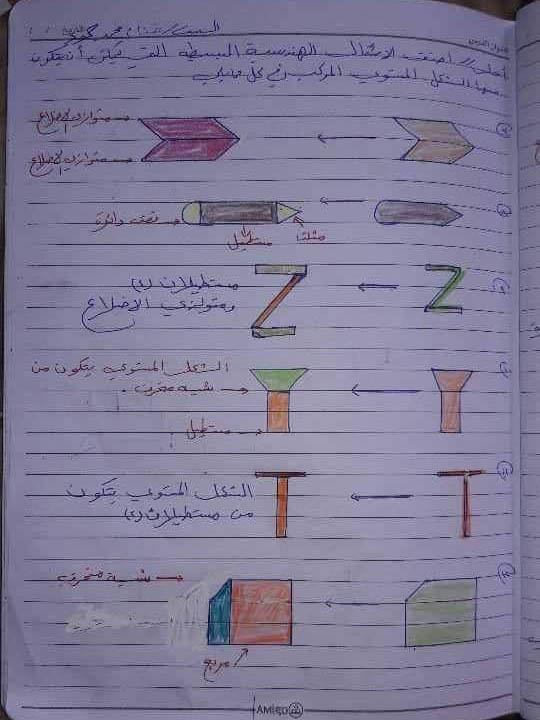 عنوان الدرس
التاريخ / /
أحلى // أصنف الاشكال الهندسية البسيطة التي يمكن أن يتكون
منها الشكل المستوي المركب في كل مما يلي
متوازي الاضلاع
متوازي الاضلاع
نصف دائرة
مستطيل
مثلث
مستطيلان (2)
ومتوازي الاضلاع
الشكل المستوي يتكون من
شبه منحرف .
مستطيل
الشكل المستوي يتكون
من مستطيلان (2)
شبه منحرف
مربع
AMIGO